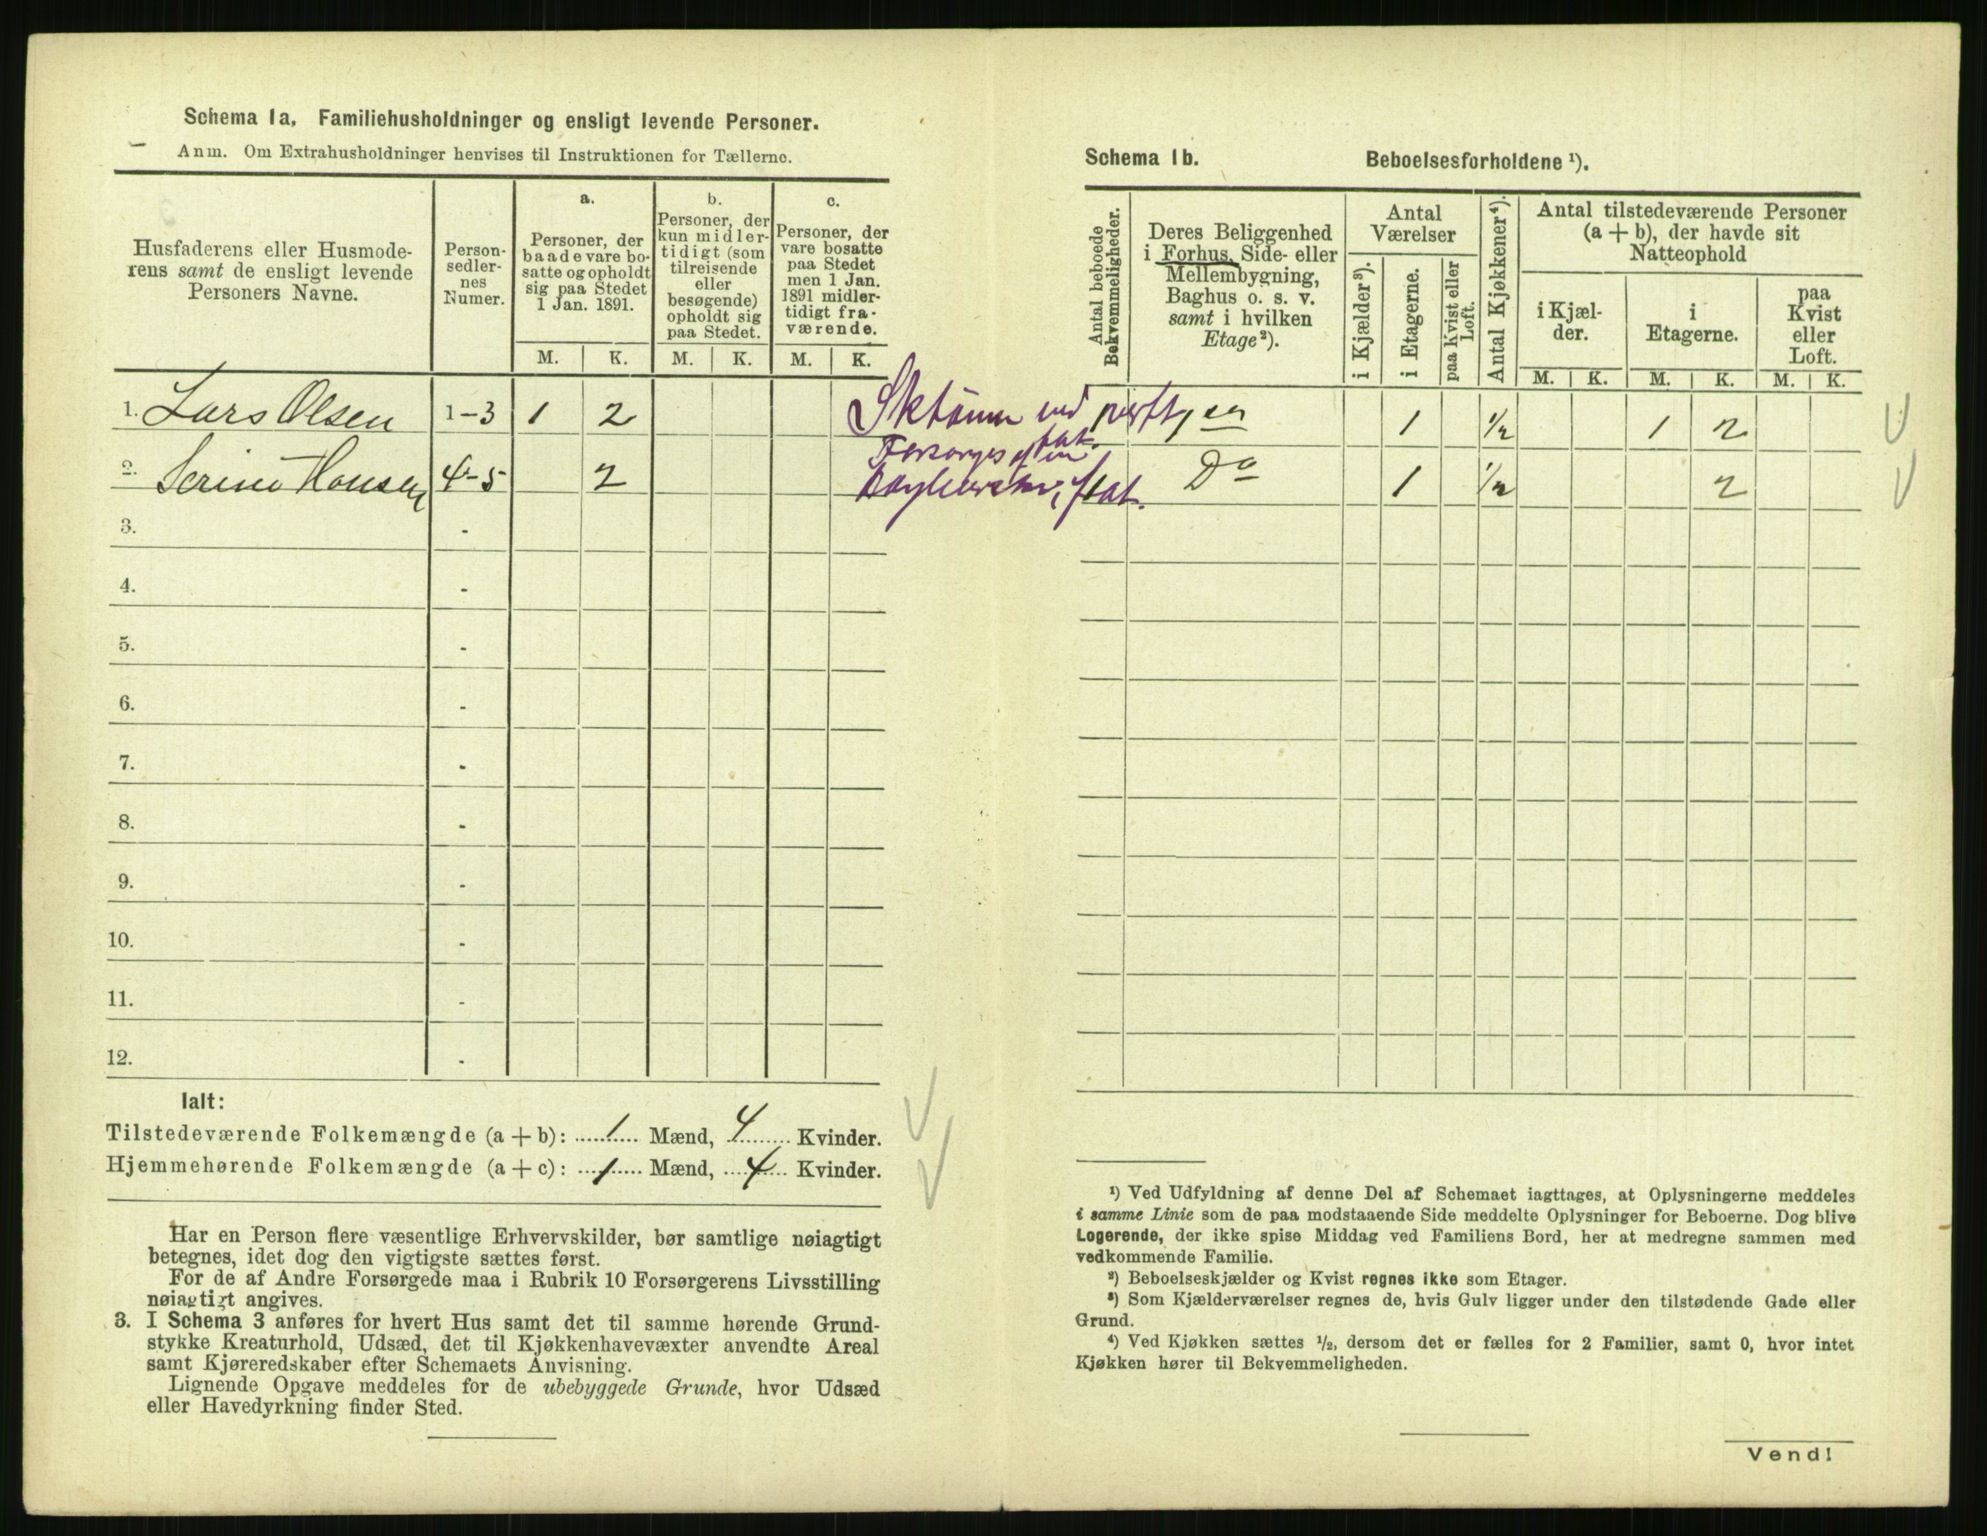 Schema 1a. Familiehusholdninger og ensligt levende Personer.
Anm. Om Extrahusholdninger henvises til Instruktionen for Tællerne.
Husfaderens eller Husmode-
rens samt de ensligt levende
Personers Navne.
Person-
sedler-
nes
Numer.
a.
Personer, der
baade vare bo-
satte og opholdt
sig paa Stedet
1 Jan. 1891.
b.
Personer, der
kun midler-
tidigt (som
tilreisende
eller
besøgende)
opholdt sig
paa Stedet.
c.
Personer, der
vare bosatte
paa Stedet
men 1 Jan.
1891 midler-
tidigt fra-
værende.
M. K. M. K. M. K.
1. Lars Olsen 1-3 1 2
2. Serine Hansen 4-5 2
3. -
4. -
5. -
6. -
7. -
8. -
9. -
10. -
11. -
12. -
Ialt:
Tilstedeværende Folkemængde (a + b): 1 Mænd, 4 Kvinder.
Hjemmehørende Folkemængde (a + c): 1 Mænd, 4 Kvinder.
Har en Person flere væsentlige Erhvervskilder, bør samtlige nøiagtigt
betegnes, idet dog den vigtigste sættes først.
For de af Andre Forsørgede maa i Rubrik 10 Forsørgerens Livsstilling
nøiagtigt angives.
3. I Schema 3 anføres for hvert Hus samt det til samme hørende Grund-
stykke Kreaturhold, Udsæd, det til Kjøkkenhavevæxter anvendte Areal
samt Kjøreredskaber efter Schemaets Anvisning.
Lignende Opgave meddeles for de ubebyggede Grunde, hvor Udsæd
eller Havedyrkning finder Sted.
Schema 1b. Beboelsesforholdene ¹).
Antal beboede
Bekvemmeligheder.
Deres Beliggenhed
i Forhus, Side- eller
Mellembygning,
Baghus o. s. v.
samt i hvilken
Etage²).
Antal
Værelser
i Kjælder³).
i Etagerne.
paa Kvist eller
Loft.
Antal Kjøkkener⁴).
Antal tilstedeværende Personer
(a + b), der havde sit
Natteophold
i Kjæl-
der.
i
Etagerne.
paa
Kvist
eller
Loft.
M. K. M. K. M. K.
1 1/2 1 2
Do 1 1/2 2
¹) Ved Udfyldning af denne Del af Schemaet iagttages, at Oplysningerne meddeles
i samme Linie som de paa modstaaende Side meddelte Oplysninger for Beboerne. Dog blive
Logerende, der ikke spise Middag ved Familiens Bord, her at medregne sammen med
vedkommende Familie.
²) Beboelseskjælder og Kvist regnes ikke som Etager.
³) Som Kjælderværelser regnes de, hvis Gulv ligger under den tilstødende Gade eller
Grund.
⁴) Ved Kjøkken sættes ¹/₂, dersom det er fælles for 2 Familier, samt 0, hvor intet
Kjøkken hører til Bekvemmeligheden.
Vend!